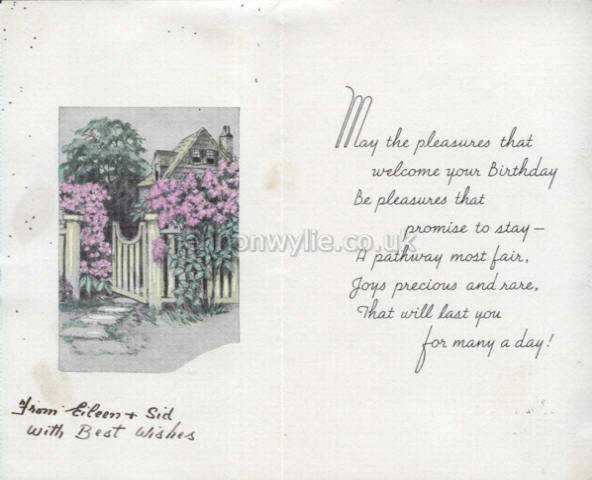 From Eileen + Sid
With Best Wishes
May the pleasures that
welcome your Birthday
Be pleasures that
promise to stay —
A pathway most fair,
Joys precious and rare,
That will last you
for many a day!